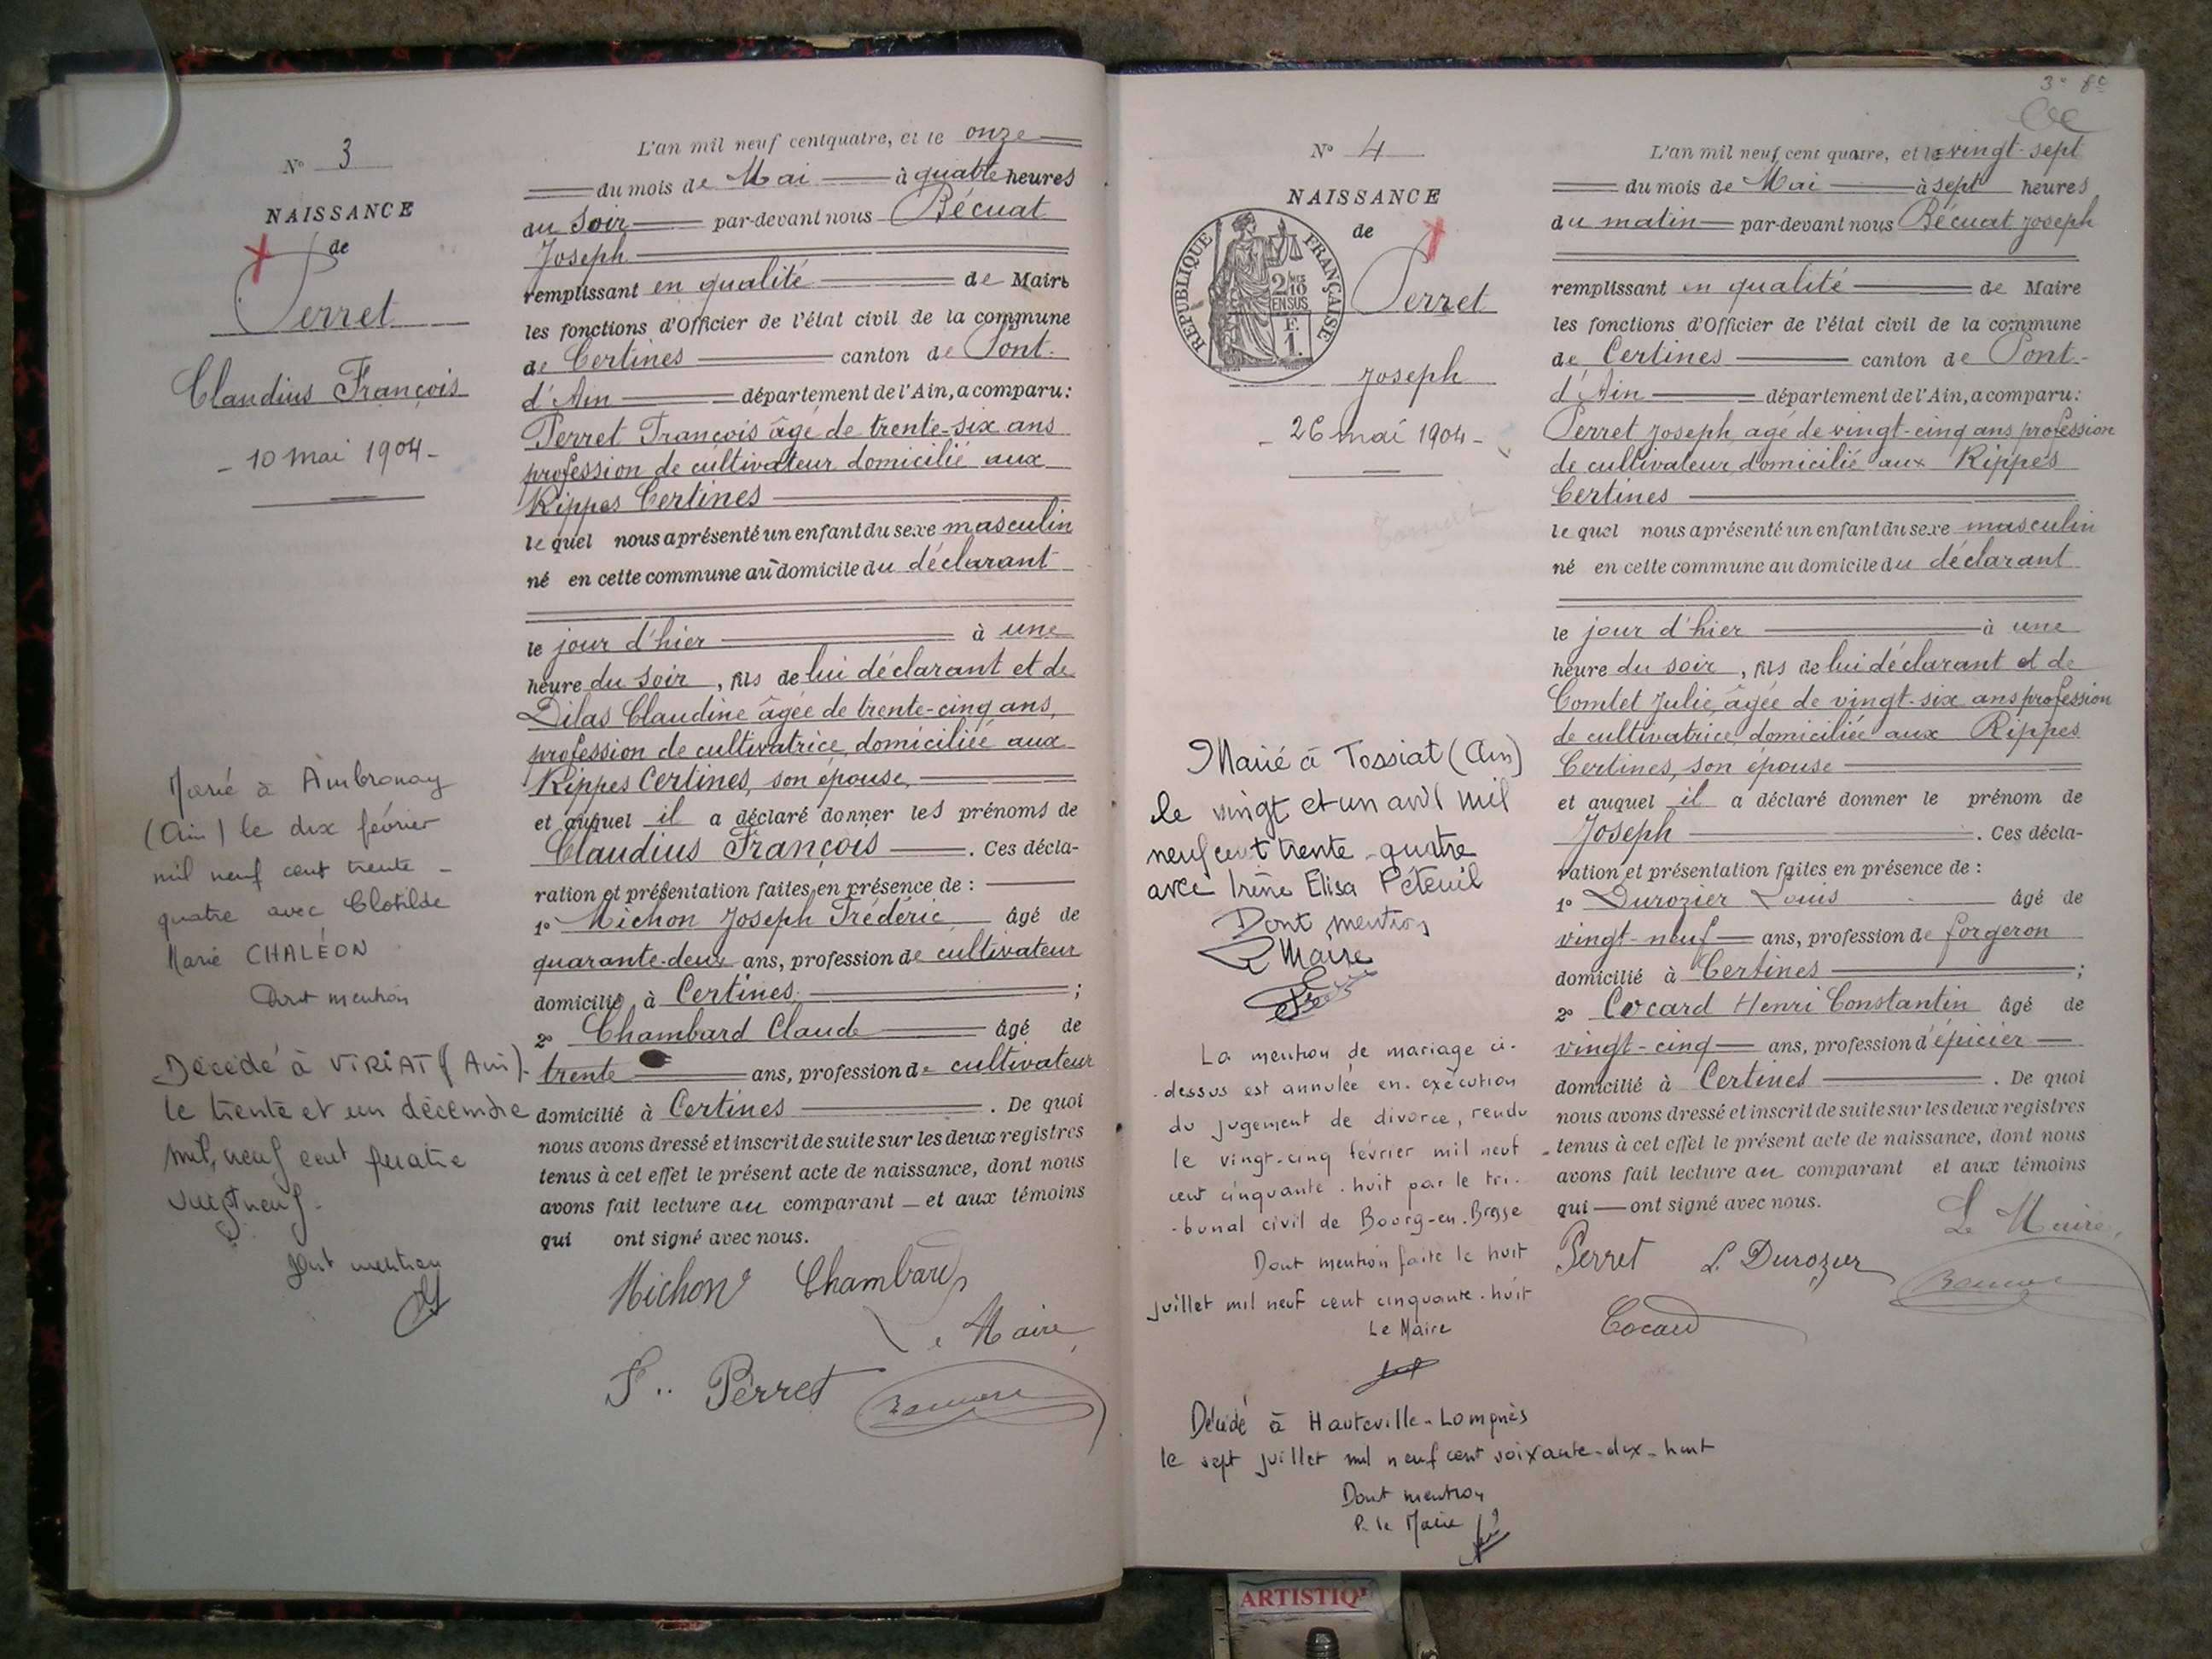 N° 3
NAISSANCE
de
Perret
Claudius François
- 10 mai 1904 -
Marié à Ambronay
(Ain) le dix février
mil neuf cent trente -
quatre avec Clotilde
Marie CHALÉON
Dont mention
Décédé à VIRIAT (Ain).
le trente et un décembre
mil, neuf cent quatre
vingt neuf.
Dont mention
L'an mil neuf cent quatre, et le onze
du mois de Mai à quatre heures
du soir par-devant nous Bécuat
Joseph
remplissant en qualité de Maire
les fonctions d'Officier de l'état civil de la commune
de Certines canton de Pont-
d'Ain département de l'Ain, a comparu:
Perret François âgé de trente-six ans
profession de cultivateur domicilié aux
Rippes Certines
le quel nous a présenté un enfant du sexe masculin
né en cette commune au domicile du déclarant
le jour d'hier à une
heure du soir, fils de lui déclarant et de
Dilas Claudine âgée de trente-cinq ans,
profession de cultivatrice, domiciliée aux
Rippes Certines, son épouse,
et auquel il a déclaré donner les prénoms de
Claudius François. Ces décla-
ration et présentation faites en présence de :
1° Michon Joseph Frédéric âgé de
quarante-deux ans, profession de cultivateur
domicilié à Certines ;
2° Chambard Claude âgé de
trente ans, profession de cultivateur
domicilié à Certines. De quoi
nous avons dressé et inscrit de suite sur les deux registres
tenus à cet effet le présent acte de naissance, dont nous
avons fait lecture au comparant et aux témoins
qui ont signé avec nous.
Michon Chambard
Le Maire,
F.. Perret
3e fo
N° 4
NAISSANCE
de
REPUBLIQUE FRANÇAISE
2/10
EN SUS
F.
1.
Perret
Joseph
- 26 mai 1904 -
Marié à Tossiat (Ain)
le vingt et un avril mil
neuf cent trente-quatre
avec Irène Elisa Péteuil
Dont mention
Le Maire
La mention de mariage ci-
dessus est annulée en exécution
du jugement de divorce, rendu
le vingt-cinq février mil neuf
cent cinquante-huit par le tri-
-bunal civil de Bourg-en-Bresse
Dont mention faite le huit
juillet mil neuf cent cinquante-huit
Le Maire
Décédé à Hauteville-Lompnès
le sept juillet mil neuf cent soixante-dix-huit
Dont mention
P. le Maire
L'an mil neuf cent quatre, et le vingt-sept
du mois de Mai à sept heures
du matin par-devant nous Bécuat Joseph
remplissant en qualité de Maire
les fonctions d'Officier de l'état civil de la commune
de Certines canton de Pont-
d'Ain département de l'Ain, a comparu:
Perret Joseph, agé de vingt-cinq ans profession
de cultivateur domicilié aux Rippes
Certines
le quel nous a présenté un enfant du sexe masculin
né en cette commune au domicile du déclarant
le jour d'hier à une
heure du soir, fils de lui déclarant et de
Comtet Julie, âgée de vingt-six ans profession
de cultivatrice domiciliée aux Rippes
Certines, son épouse
et auquel il a déclaré donner le prénom de
Joseph. Ces décla-
ration et présentation faites en présence de :
1° Durozier Louis âgé de
vingt-neuf ans, profession de forgeron
domicilié à Certines ;
2° Cocard Henri Constantin âgé de
vingt-cinq ans, profession d'épicier
domicilié à Certines. De quoi
nous avons dressé et inscrit de suite sur les deux registres
tenus à cet effet le présent acte de naissance, dont nous
avons fait lecture au comparant et aux témoins
qui ont signé avec nous.
Le Maire,
Perret L. Durozier
Cocard
ARTISTIQ